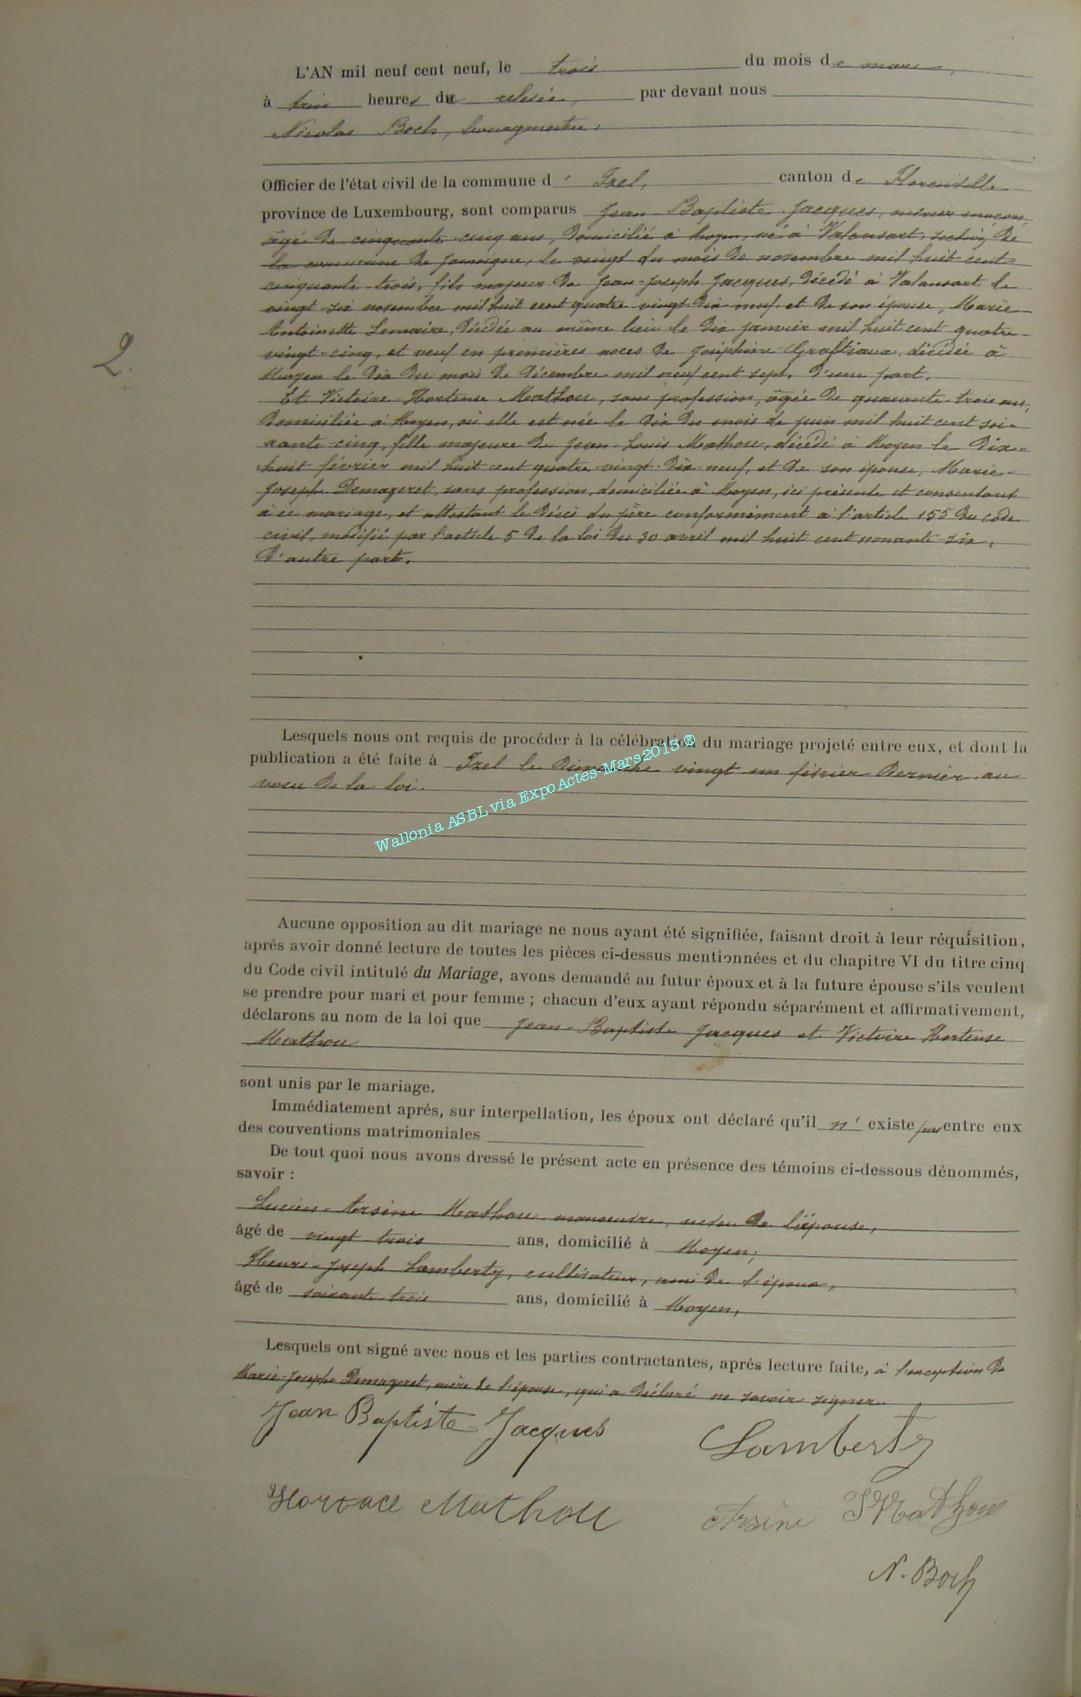 L'AN mil neuf cent neuf, le trois du mois de mars,
à trois heures du relevée, par devant nous
Nicolas Boch, bourgmestre,
Officier de l'état civil de la commune d' Izel, canton de Florenville
province de Luxembourg, sont comparus Jean-Baptiste Jacques, ouvrier maçon,
âgé de cinquante-cinq ans, domicilié à Moyen, né à Valansart, section de
la commune de Jamoigne, le vingt du mois de novembre mil huit cent
cinquante-trois, fils majeur de Jean-Joseph Jacques, décédé à Valansart le
vingt-six novembre mil huit cent quatre-vingt-dix-neuf et de son épouse, Marie-
Antoinette Lemaire, décédée au même lieu le dix janvier mil huit cent quatre-
vingt-cinq, et veuf en premières noces de Joséphine Graftiaux, décédée à
Moyen le dix du mois de décembre mil neuf cent sept, d'une part.
Et Victoire-Hortense Mathou, sans profession, âgée de quarante-trois ans,
domiciliée à Moyen, où elle est née le dix du mois de juin mil huit cent soi-
xante-cinq, fille majeure de Jean-Louis Mathou, décédé à Moyen le dix-
huit février mil huit cent quatre-vingt-dix-neuf, et de son épouse, Marie-
Joseph Demazeret, sans profession, domiciliée à Moyen, ici présente et consentant
à ce mariage, et attestant le décès du père conformément à l'article 155 du code
civil, modifié par l'article 5 de la loi du 30 avril mil huit cent nonante-six,
d'autre part.
2.
Lesquels nous ont requis de procéder à la célébration du mariage projeté entre eux, et dont la
publication a été faite à Izel le dimanche vingt un février dernier au
vœu de la loi.
Wallonia ASBL via ExpoActes-Mars2013®
Aucune opposition au dit mariage ne nous ayant été signifiée, faisant droit à leur réquisition,
après avoir donné lecture de toutes les pièces ci-dessus mentionnées et du chapitre VI du titre cinq
du Code civil intitulé du Mariage, avons demandé au futur époux et à la future épouse s'ils veulent
se prendre pour mari et pour femme ; chacun d'eux ayant répondu séparément et affirmativement,
déclarons au nom de la loi que Jean-Baptiste Jacques et Victoire Hortense
Mathou
sont unis par le mariage.
Immédiatement après, sur interpellation, les époux ont déclaré qu'il n' existe pas entre eux
des conventions matrimoniales
De tout quoi nous avons dressé le présent acte en présence des témoins ci-dessous dénommés,
savoir :
Lucien-Arsène Mathou, manoeuvre, de l'épouse,
âgé de vingt-trois ans, domicilié à Moyen;
Henri-Joseph Lamberty, cultivateur, ami de l'époux,
âgé de soixante-trois ans, domicilié à Moyen,
Lesquels ont signé avec nous et les parties contractantes, après lecture faite, à l'exception de
Marie-Joseph Demazeret, mère de l'épouse, qui a déclaré ne savoir signer.
Jean Baptiste Jacques
Lamberty
Mathou
Arsène Mathou
N. Boch